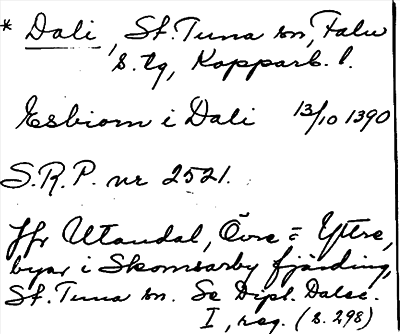 * Dali, St. Tuna sn, Falu
s. tg, Kopparb. l.
Esbiorn i Dali 13/10 1390
S.R.P. nr 2521.
Jfr Utandal, Övre = Yttre,
byar i Skomsarby fjärding,
St. Tuna sn. Se Dipl. Dalec.
I, reg. (s. 298)